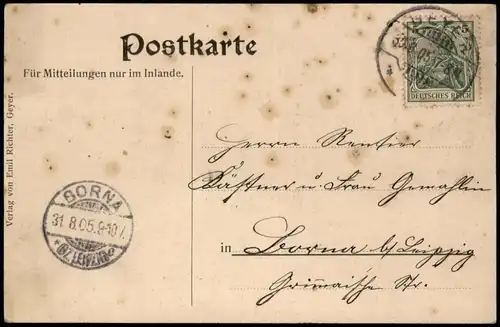 Postkarte
Für Mitteilungen nur im Inlande.
5 5
DEUTSCHES REICH
Herrn Rentier
Kästner u. Frau Gemahlin
in Borna b/Leipzig
Grimmaische Str.
BORNA
31.8.05.9-10V.
*(BZ. LEIPZIG)*
Verlag von Emil Richter, Geyer.